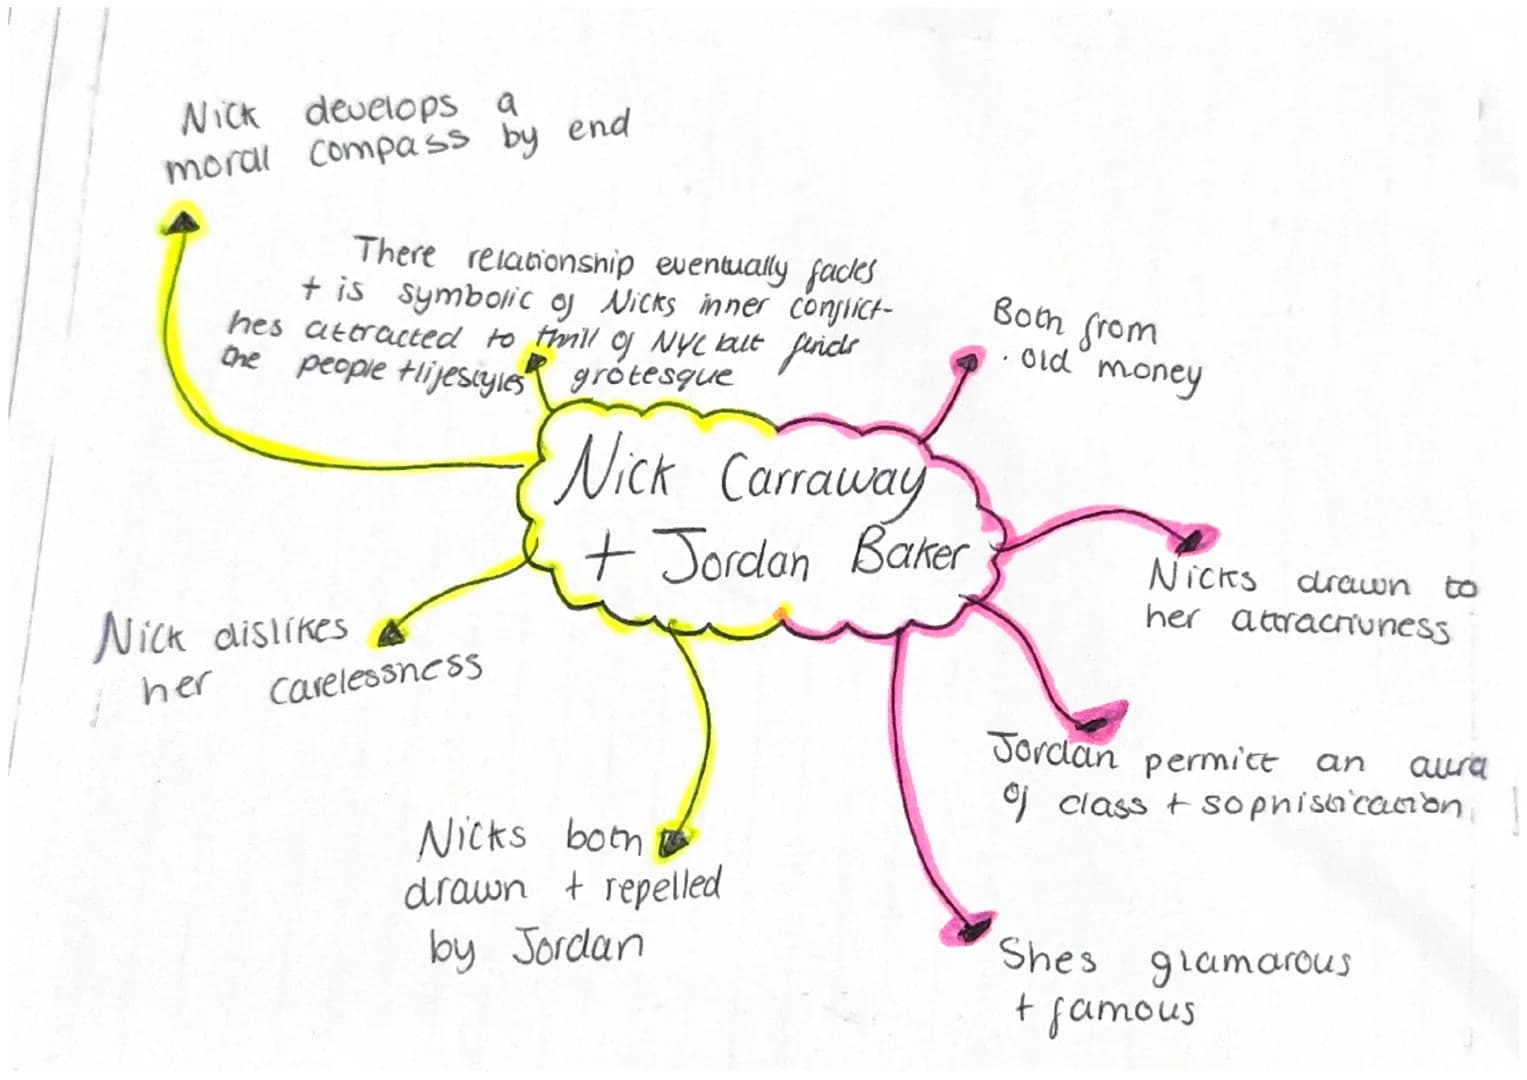 Nick develops a
moral compass by end
There relationship eventually fades
+ is symbolic of Nicks inner conflict-
hes attracted to thrill of NYC but finds
the people + lifestyles grotesque
Both from
old money
Nick Carraway
+ Jordan Baker
Nicks drawn to
her attractivness
Nick dislikes
her carelessness
Jordan permitt an aura
of class + sophistication
Nicks both
drawn + repelled
by Jordan
Shes glamarous
+ famous